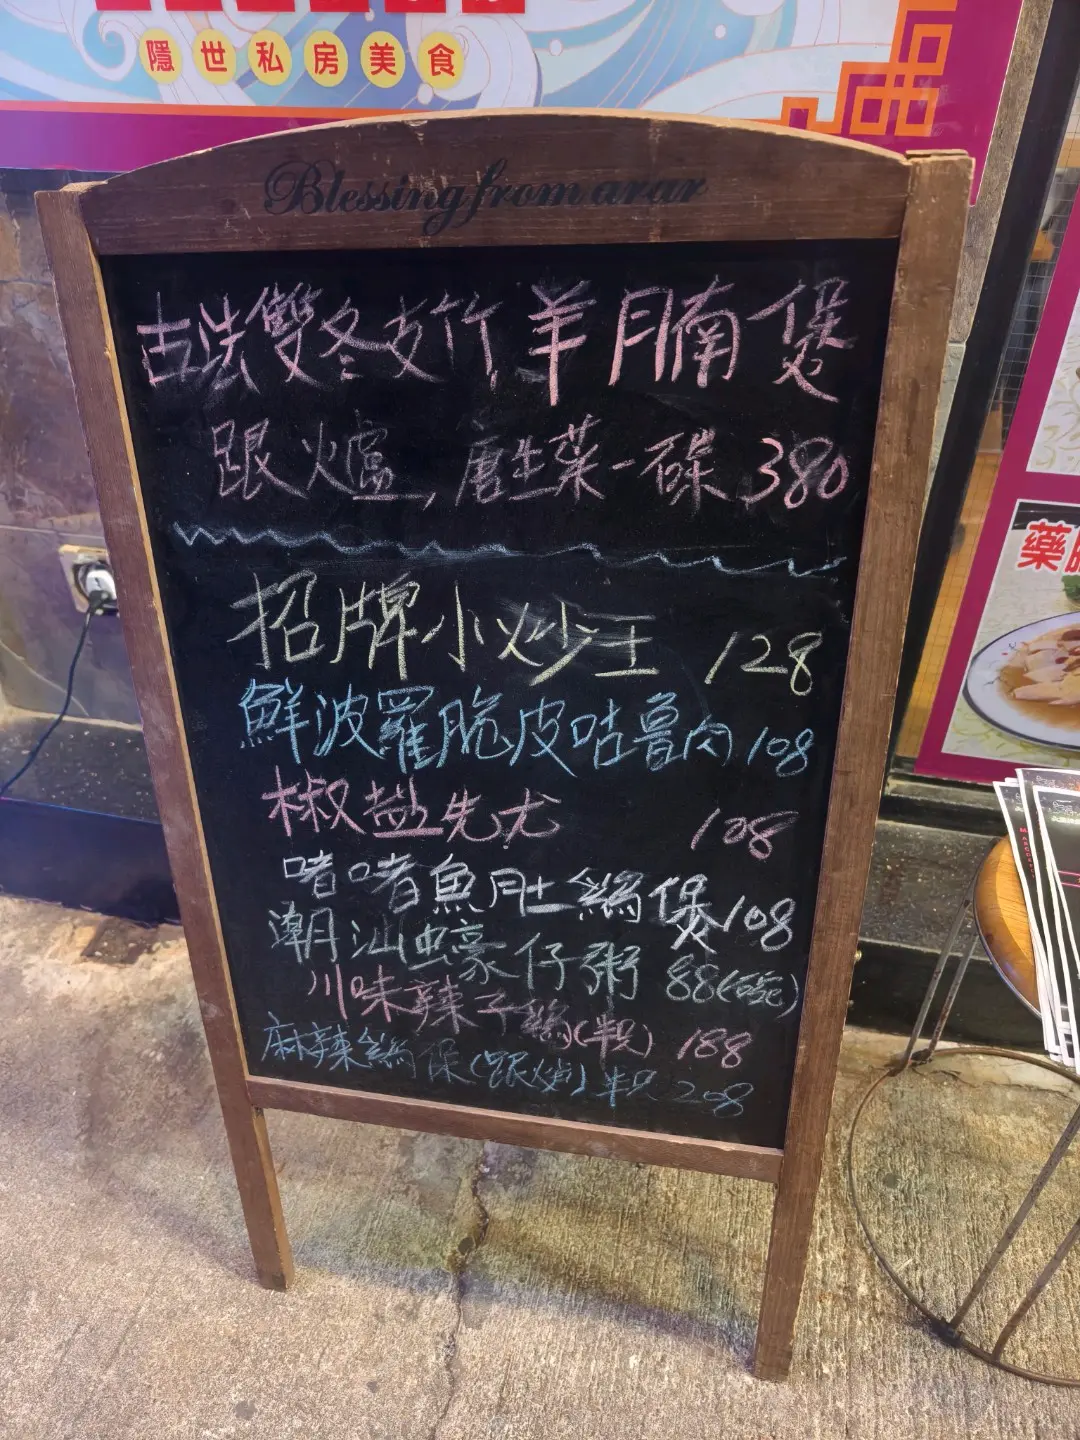 隱世私房美食
Blessing from arar
古法雙冬支竹羊腩煲
跟火爐,唐生菜一碟 380
招牌小炒王 128
鮮波羅脆皮咕魯肉 108
椒盐先尤 108
啫啫魚肚鷄煲 108
潮汕蠔仔粥 88(碗)
川味辣子鷄(半只) 188
麻辣鷄煲(跟炉)半只 208
藥